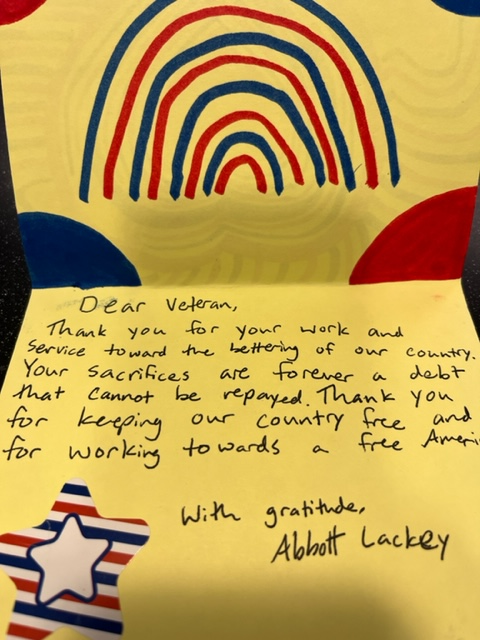 Dear Veteran,
Thank you for your work and
service toward the bettering of our country.
Your sacrifices are forever a debt
that cannot be repayed. Thank you
for keeping our country free and
for working towards a free Ameri
With gratitude,
Abbott Lackey